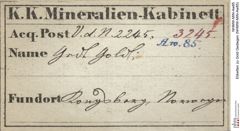 K.K. Mineralien-Kabinett
Acq. Post V.d.N. 2245. 3245.
A.v. 85.
Name Ged. Gold.
Fundort Kongsberg, Norwegen